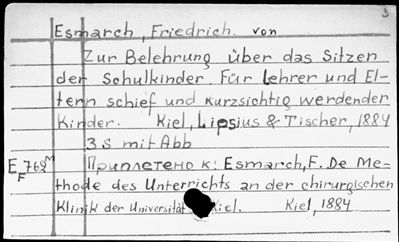 3
Esmarch, Friedrich. von
Zur Belehrung über das Sitzen
der Schulkinder. Für Lehrer und El-
tern schief und kurzsichtig werdender
Kinder. Kiel, Lipsius & Tischer, 1884
3 S mit Abb
E F 762 M Приплетено к: Esmarch, F. De Me-
thode des Unterrichts an der chirurgischen
Klinik der Universität Kiel. Kiel, 1884